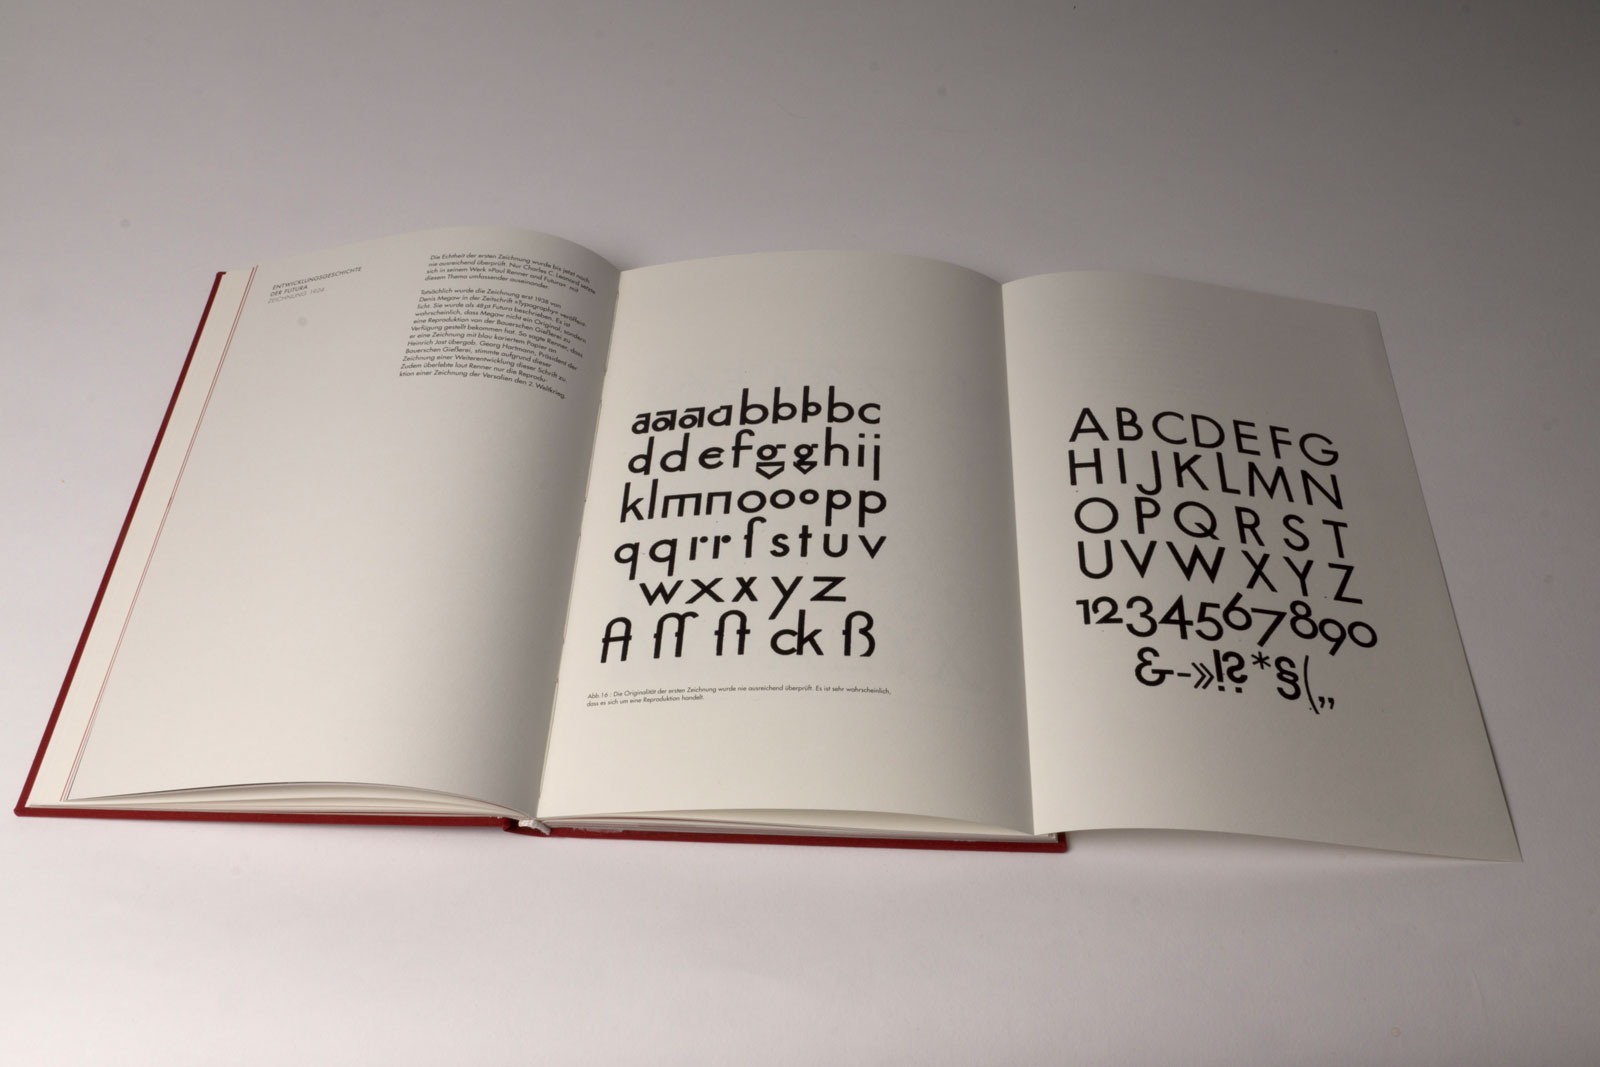 ENTWICKLUNGSGESCHICHTE
DER FUTURA
ZEICHNUNG 1924
Die Echtheit der ersten Zeichnung wurde bis jetzt noch
nie ausreichend überprüft. Nur Charles C. Leonard setzte
sich in seinem Werk »Paul Renner and Futura« mit
diesem Thema umfassender auseinander.
Tatsächlich wurde die Zeichnung erst 1938 von
Denis Megaw in der Zeitschrift »Typography« veröffent-
licht. Sie wurde als 48pt Futura beschrieben. Es ist
wahrscheinlich, dass Megaw nicht ein Original, sondern
eine Reproduktion von der Bauerschen Gießerei zu
Verfügung gestellt bekommen hat. So sagte Renner, dass
er eine Zeichnung mit blau kariertem Papier an
Heinrich Jost übergab. Georg Hartmann, Präsident der
Bauerschen Gießerei, stimmte aufgrund dieser
Zeichnung einer Weiterentwicklung dieser Schrift zu.
Zudem überlebte laut Renner nur die Reprodu-
ktion einer Zeichnung der Versalien den 2. Weltkrieg.
aaaabbbbc
ddefgghij
klmnooopp
qqrrſstuv
wxxyz
A ſſ ſt ck ß
Abb.16 : Die Originalität der ersten Zeichnung wurde nie ausreichend überprüft. Es ist sehr wahrscheinlich,
dass es sich um eine Reproduktion handelt.
ABCDEFG
HIJKLMN
OPQRST
UVWXYZ
1234567890
&-»!?*§(„